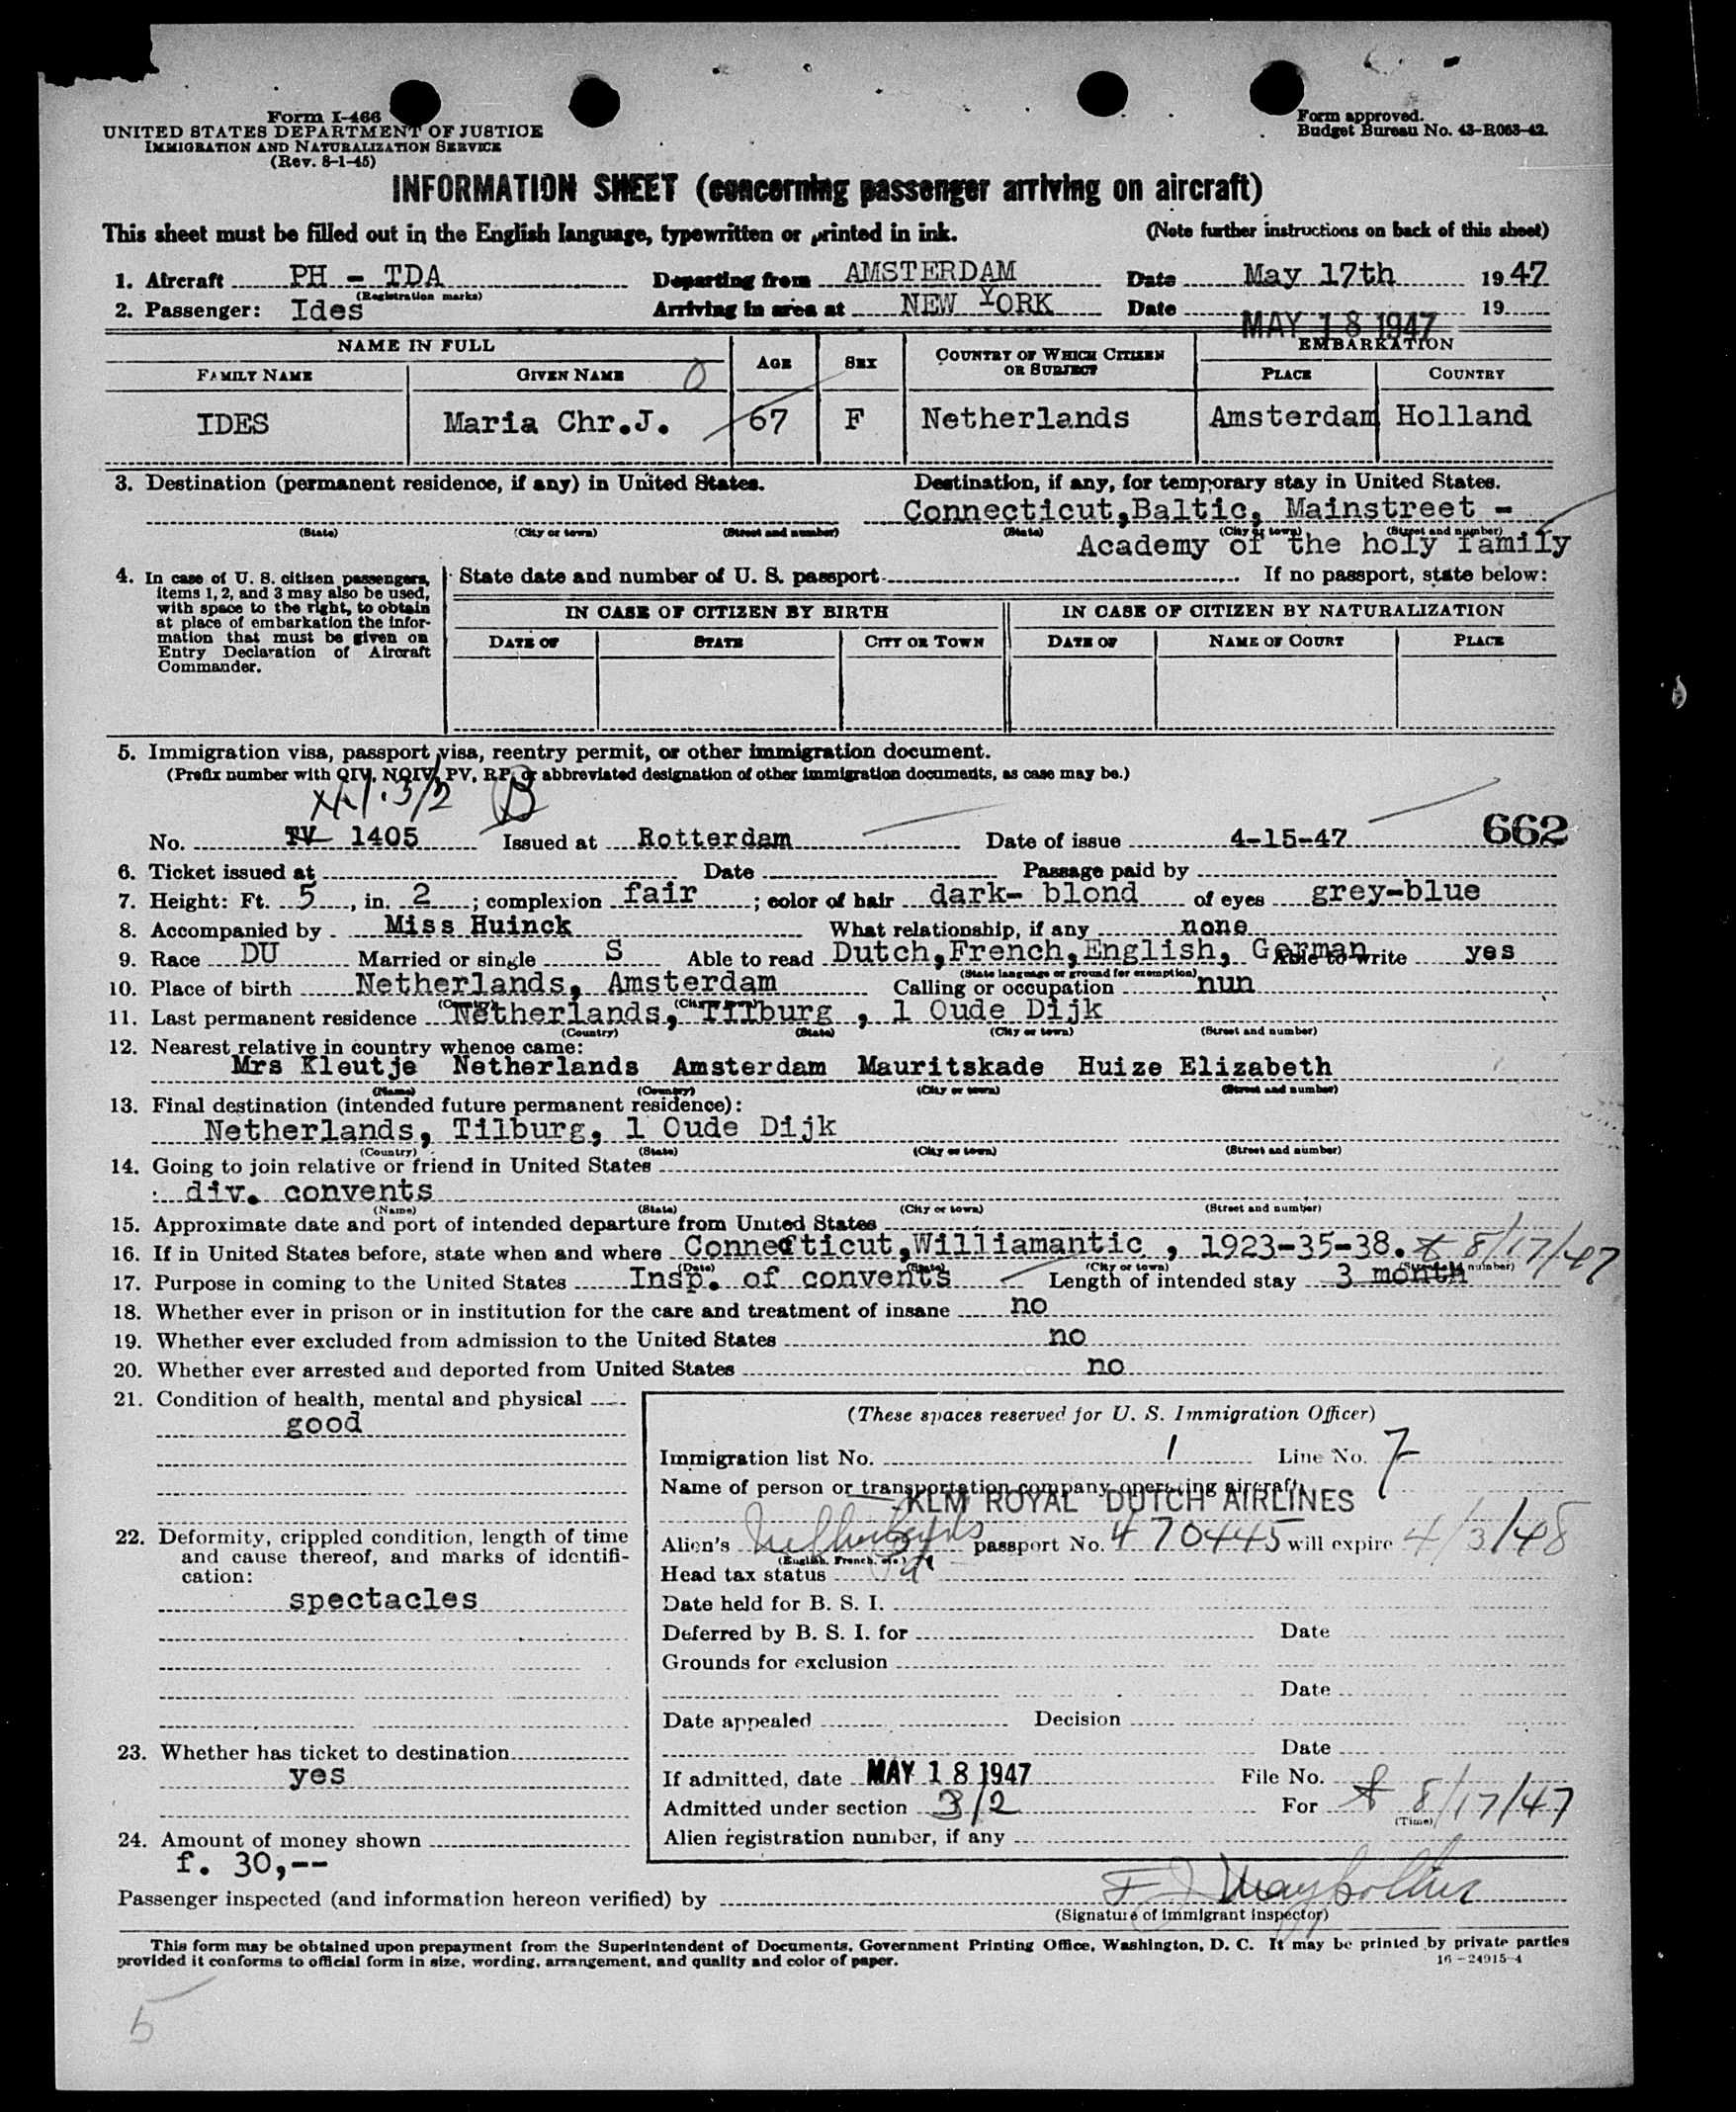 Form I-466
UNITED STATES DEPARTMENT OF JUSTICE
IMMIGRATION AND NATURALIZATION SERVICE
(Rev. 8-1-45)
Form approved.
Budget Bureau No. 43-R063-42.
INFORMATION SHEET (concerning passenger arriving on aircraft)
This sheet must be filled out in the English language, typewritten or printed in ink. (Note further instructions on back of this sheet)
1. Aircraft PH - TDA Departing from AMSTERDAM Date May 17th 1947
(Registration marks)
2. Passenger: Ides Arriving in area at NEW YORK Date MAY 18 1947 19
NAME IN FULL AGE SEX COUNTRY OF WHICH CITIZEN OR SUBJECT EMBARKATION
FAMILY NAME GIVEN NAME PLACE COUNTRY
IDES Maria Chr.J. 67 F Netherlands Amsterdam Holland
3. Destination (permanent residence, if any) in United States. Destination, if any, for temporary stay in United States.
Connecticut,Baltic, Mainstreet -
(State) (City or town) (Street and number) (State) (City or town) (Street and number)
Academy of the holy family
4. In case of U. S. citizen passengers, items 1, 2, and 3 may also be used, with space to the right, to obtain at place of embarkation the information that must be given on Entry Declaration of Aircraft Commander.
State date and number of U. S. passport If no passport, state below:
IN CASE OF CITIZEN BY BIRTH IN CASE OF CITIZEN BY NATURALIZATION
DATE OF STATE CITY OR TOWN DATE OF NAME OF COURT PLACE
5. Immigration visa, passport visa, reentry permit, or other immigration document.
(Prefix number with QIV, NQIV, PV, RP, or abbreviated designation of other immigration documents, as case may be.)
3/2 B
No. TV 1405 Issued at Rotterdam Date of issue 4-15-47 662
6. Ticket issued at Date Passage paid by
7. Height: Ft. 5, in. 2; complexion fair; color of hair dark- blond of eyes grey-blue
8. Accompanied by Miss Huinck What relationship, if any none
9. Race DU Married or single S Able to read Dutch,French,English, German Able to write yes
(State language or ground for exemption)
10. Place of birth Netherlands, Amsterdam Calling or occupation nun
(Country) (City or town)
11. Last permanent residence Netherlands, Tilburg , 1 Oude Dijk
(Country) (State) (City or town) (Street and number)
12. Nearest relative in country whence came:
Mrs Kleutje Netherlands Amsterdam Mauritskade Huize Elizabeth
(Name) (Country) (City or town) (Street and number)
13. Final destination (intended future permanent residence):
Netherlands, Tilburg, 1 Oude Dijk
(Country) (State) (City or town) (Street and number)
14. Going to join relative or friend in United States
div. convents
(Name) (State) (City or town) (Street and number)
15. Approximate date and port of intended departure from United States
16. If in United States before, state when and where Connecticut,Williamantic , 1923-35-38. 8/17/47
(Date) (State) (City or town) (Street and number)
17. Purpose in coming to the United States Insp. of convents Length of intended stay 3 month
18. Whether ever in prison or in institution for the care and treatment of insane no
19. Whether ever excluded from admission to the United States no
20. Whether ever arrested and deported from United States no
21. Condition of health, mental and physical
good
22. Deformity, crippled condition, length of time and cause thereof, and marks of identification:
spectacles
23. Whether has ticket to destination
yes
24. Amount of money shown
f. 30,--
(These spaces reserved for U. S. Immigration Officer)
Immigration list No. 1 Line No. 7
Name of person or transportation company operating aircraft
KLM ROYAL DUTCH AIRLINES
Alien's Netherlands passport No. 470445 will expire 4/3/48
(English, French, etc.)
Head tax status
Date held for B. S. I.
Deferred by B. S. I. for Date
Grounds for exclusion
Date
Date appealed Decision
Date
If admitted, date MAY 18 1947 File No.
Admitted under section 3/2 For 8/17/47
(Time)
Alien registration number, if any
Passenger inspected (and information hereon verified) by
(Signature of immigrant inspector)
This form may be obtained upon prepayment from the Superintendent of Documents, Government Printing Office, Washington, D. C. It may be printed by private parties
provided it conforms to official form in size, wording, arrangement, and quality and color of paper. 16-24915-4
5